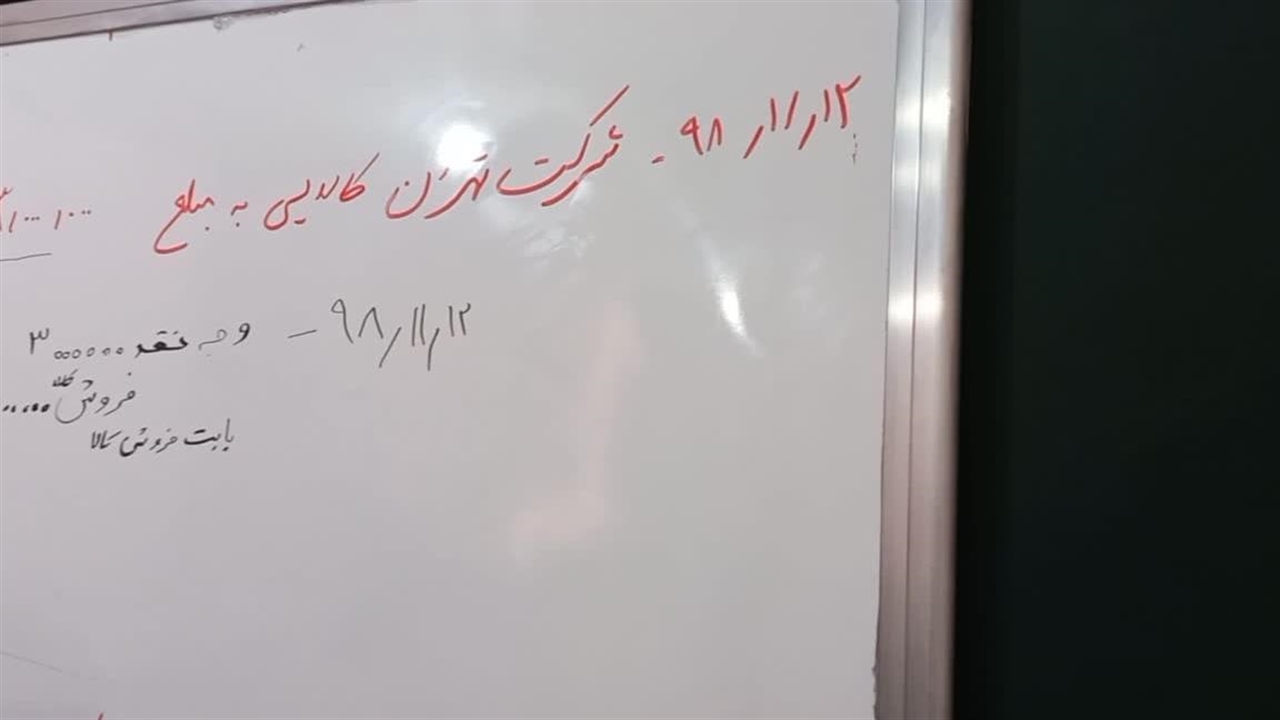 ۹۸/۱۱/۱۲ - شرکت تهران کالایی به مبلغ ۳/۰۰۰/۰۰۰
۹۸/۱۱/۱۲ - وجه نقد ۳۰۰۰۰۰۰
فروش کالا
بابت فروش کالا